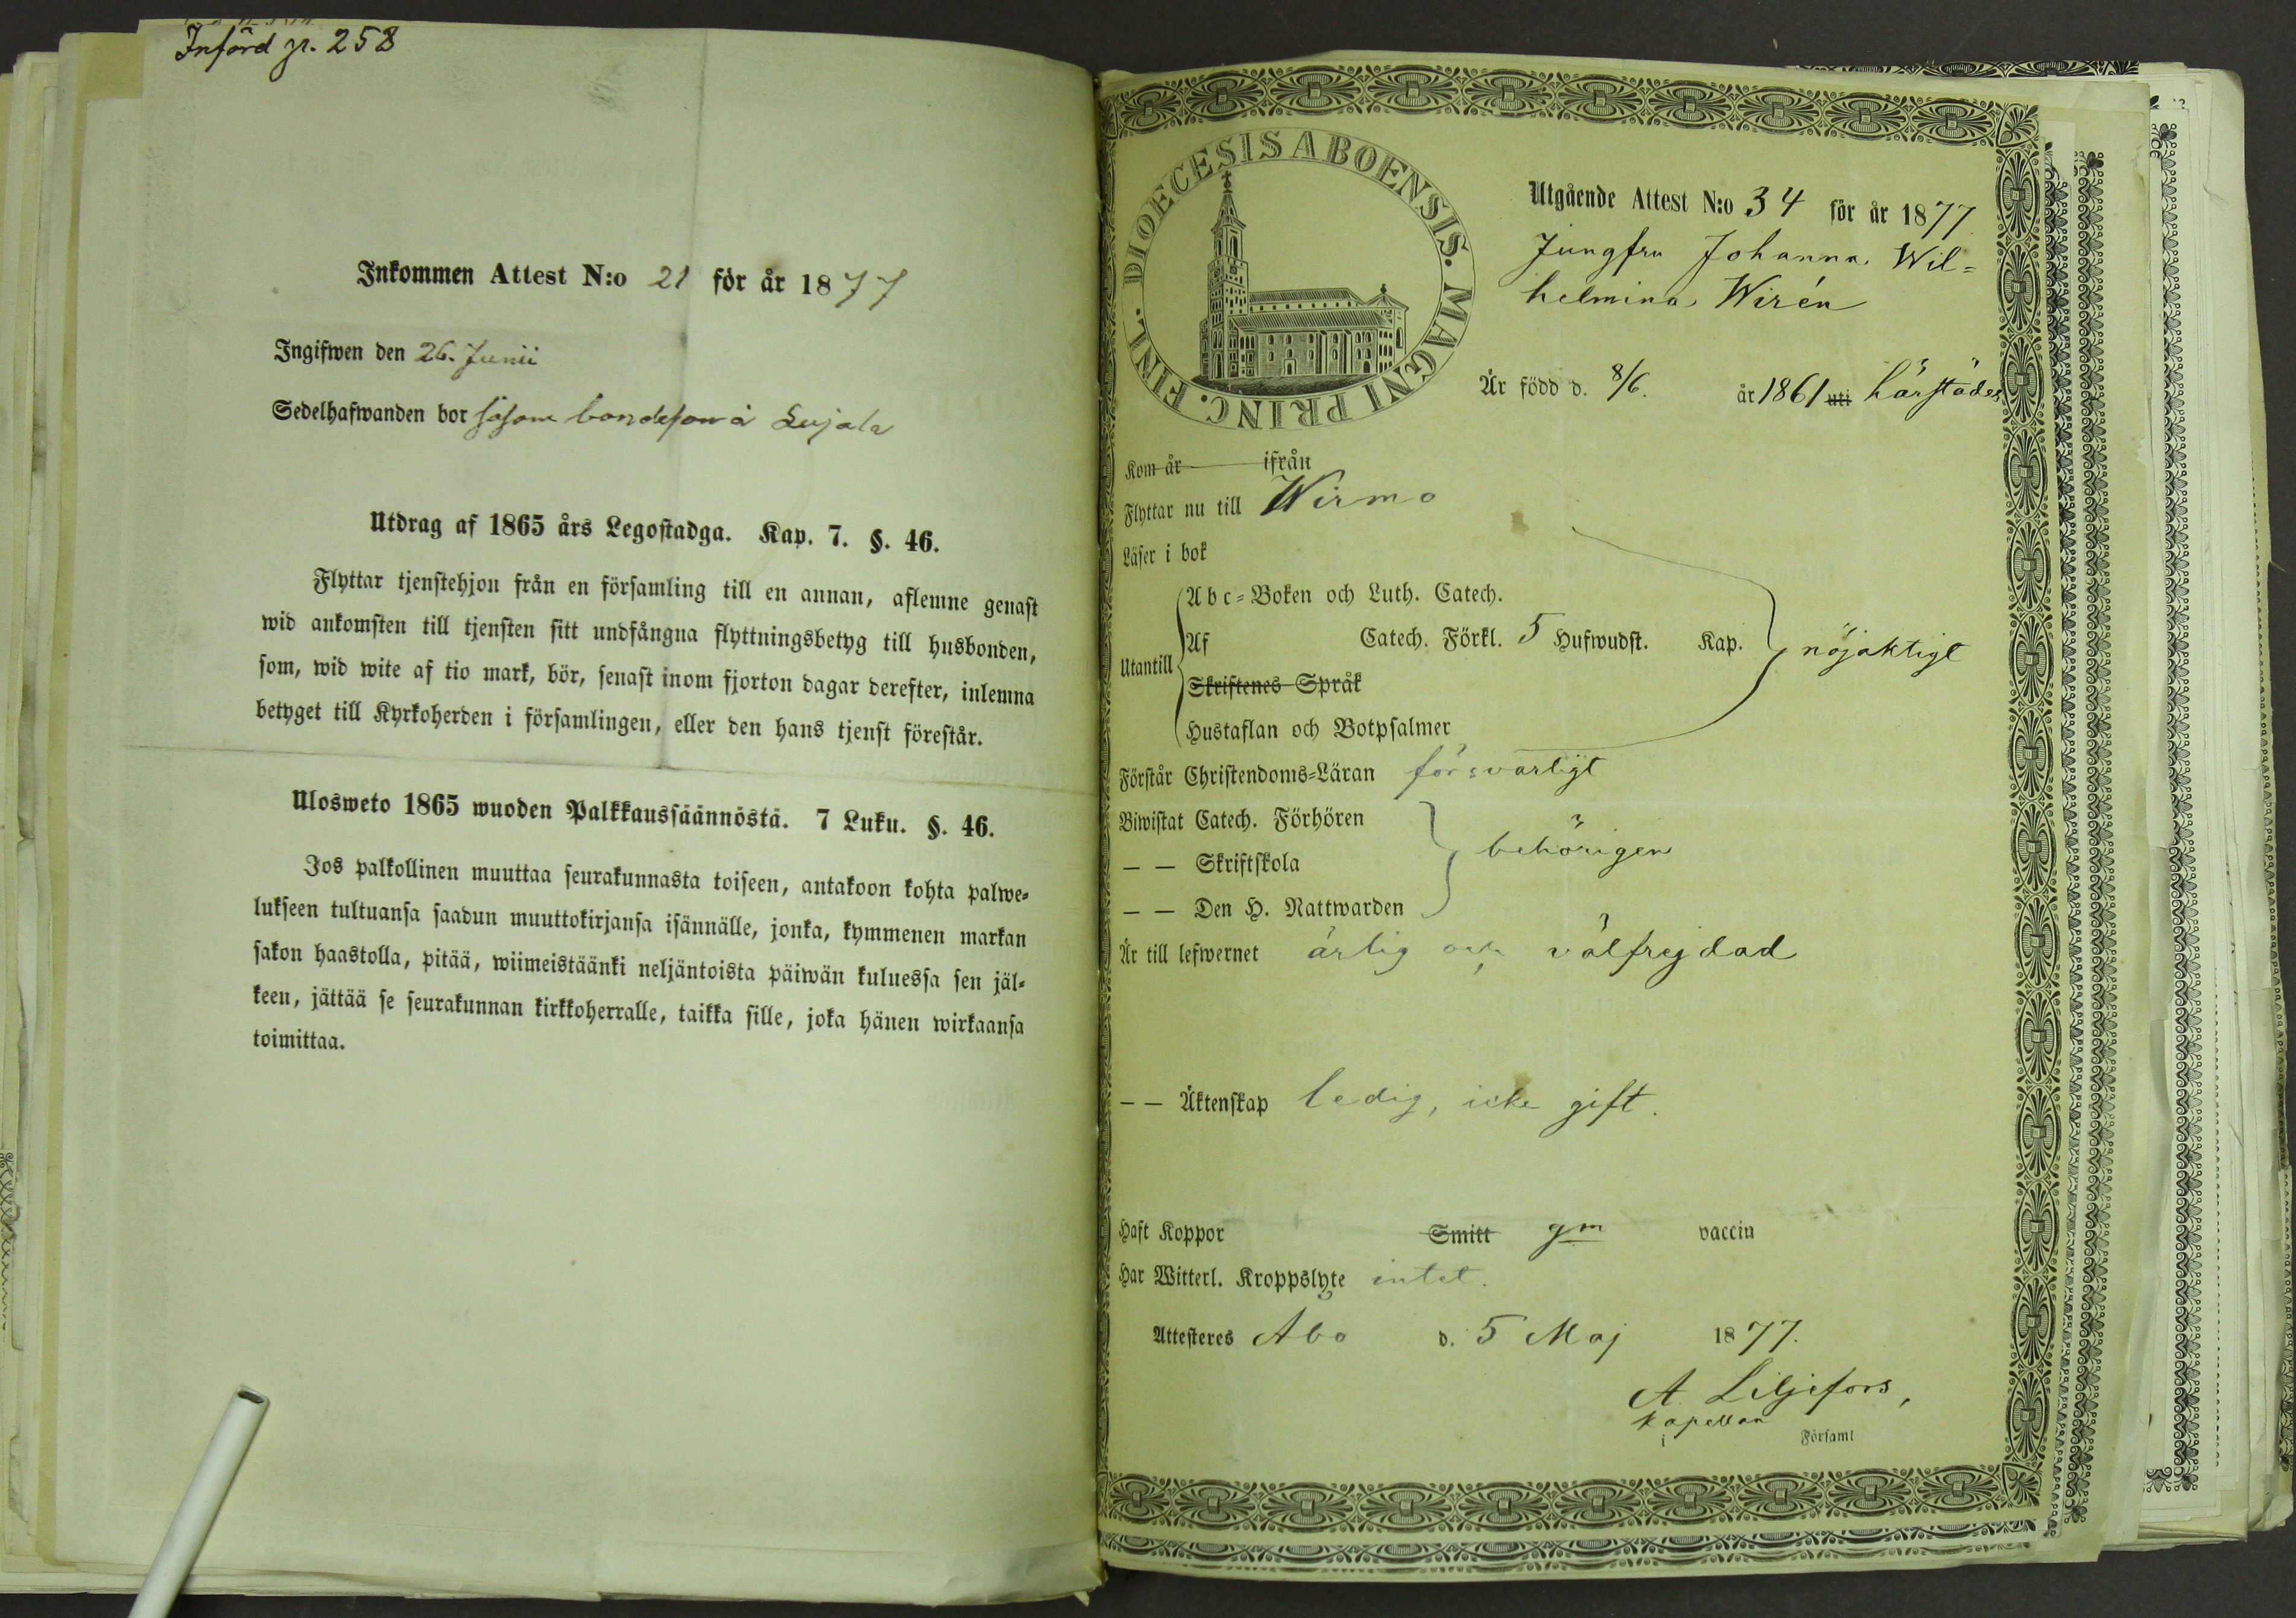 Införd p. 258
Inkommen Attest N:o 21 för år 1877
Ingifwen den 26. Junii
Sedelhafwanden bor såsom bondeson å Lujala
Utdrag af 1865 års Legostadga. Kap. 7. §. 46.
Flyttar tjenstehjon från en församling till en annan, aflemne genast
wid ankomsten till tjensten sitt undfångna flyttningsbetyg till husbonden,
som, wid wite af tio mark, bör, senast inom fjorton dagar derefter, inlemna
betyget till Kyrkoherden i församlingen, eller den hans tjenst förestår.
Ulosweto 1865 wuoden Palkkaussäännöstä. 7 Luku. §. 46.
Jos palkollinen muuttaa seurakunnasta toiseen, antakoon kohta palwe-
lukseen tultuansa saadun muuttokirjansa isännälle, jonka, kymmenen markan
sakon haastolla, pitää, wiimeistäänki neljäntoista päiwän kuluessa sen jäl-
keen, jättää se seurakunnan kirkkoherralle, taikka sille, joka hänen wirkaansa
toimittaa.
DIOECESIS ABOENSIS. MAGNI PRINC. FINL.
Utgående Attest N:o 34 för år 1877
Jungfru Johanna Wil=
helmina Wirén
Är född d. 8/6. år 1861 uti härstädes
Kom år ifrån
Flyttar nu till Wirmo
Läser i bok
Abc-Boken och Luth. Catech.
Utantill Af Catech. Förkl. 5 Hufwudst. Kap. nöjaktigt
Skriftenes Språk
Hustaflan och Botpsalmer
Förstår Christendoms-Läran försvarligt
Biwistat Catech. Förhören
— — Skriftskola behörigen
— — Den H. Nattwarden
Är till lefwernet ärlig och välfrejdad
— — Äktenskap ledig, icke gift.
Haft Koppor Smitt gm vaccin
Har Witterl. Kroppslyte intet.
Attesteres Åbo d. 5 Maj 1877.
A. Liljefors,
Kapellan
i Församl